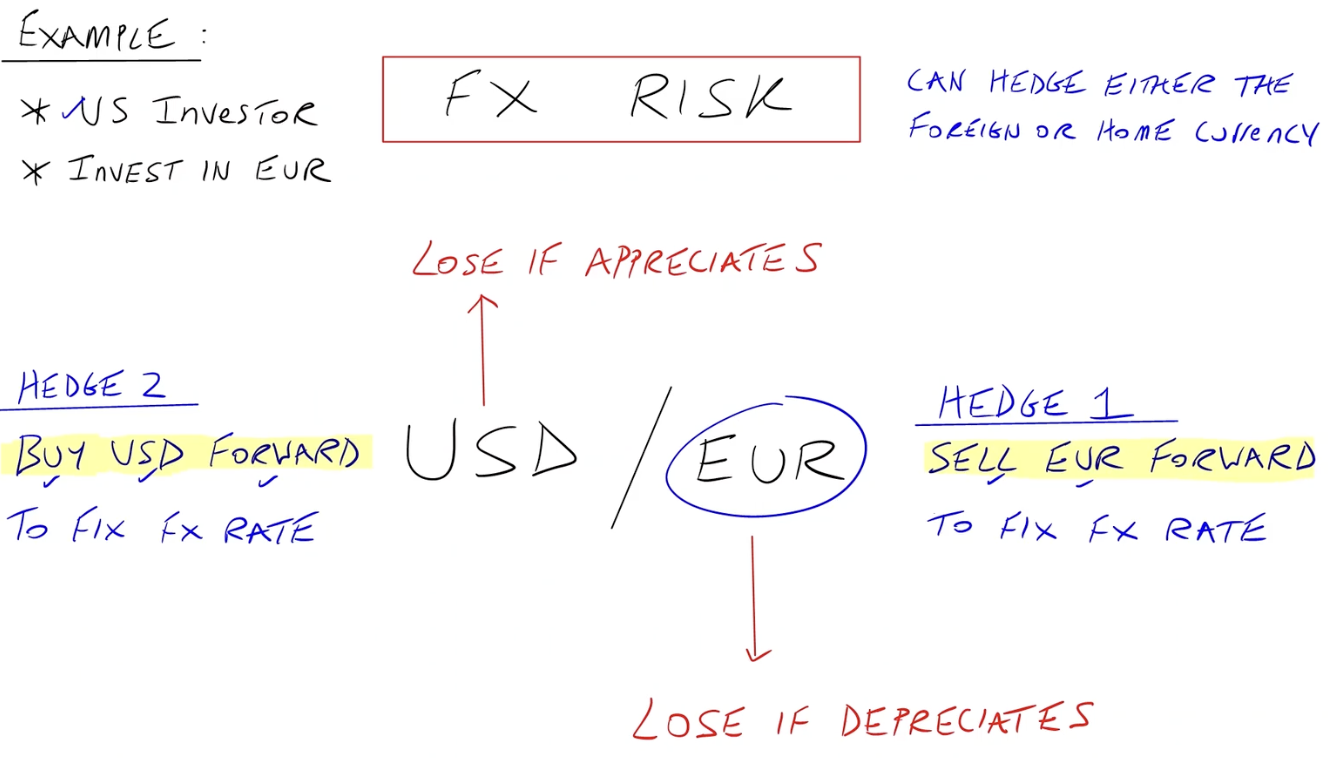 EXAMPLE :
* US INVESTOR
* INVEST IN EUR
FX RISK
CAN HEDGE EITHER THE
FOREIGN OR HOME CURRENCY
LOSE IF APPRECIATES
HEDGE 2
BUY USD FORWARD
TO FIX FX RATE
USD / EUR
HEDGE 1
SELL EUR FORWARD
TO FIX FX RATE
LOSE IF DEPRECIATES